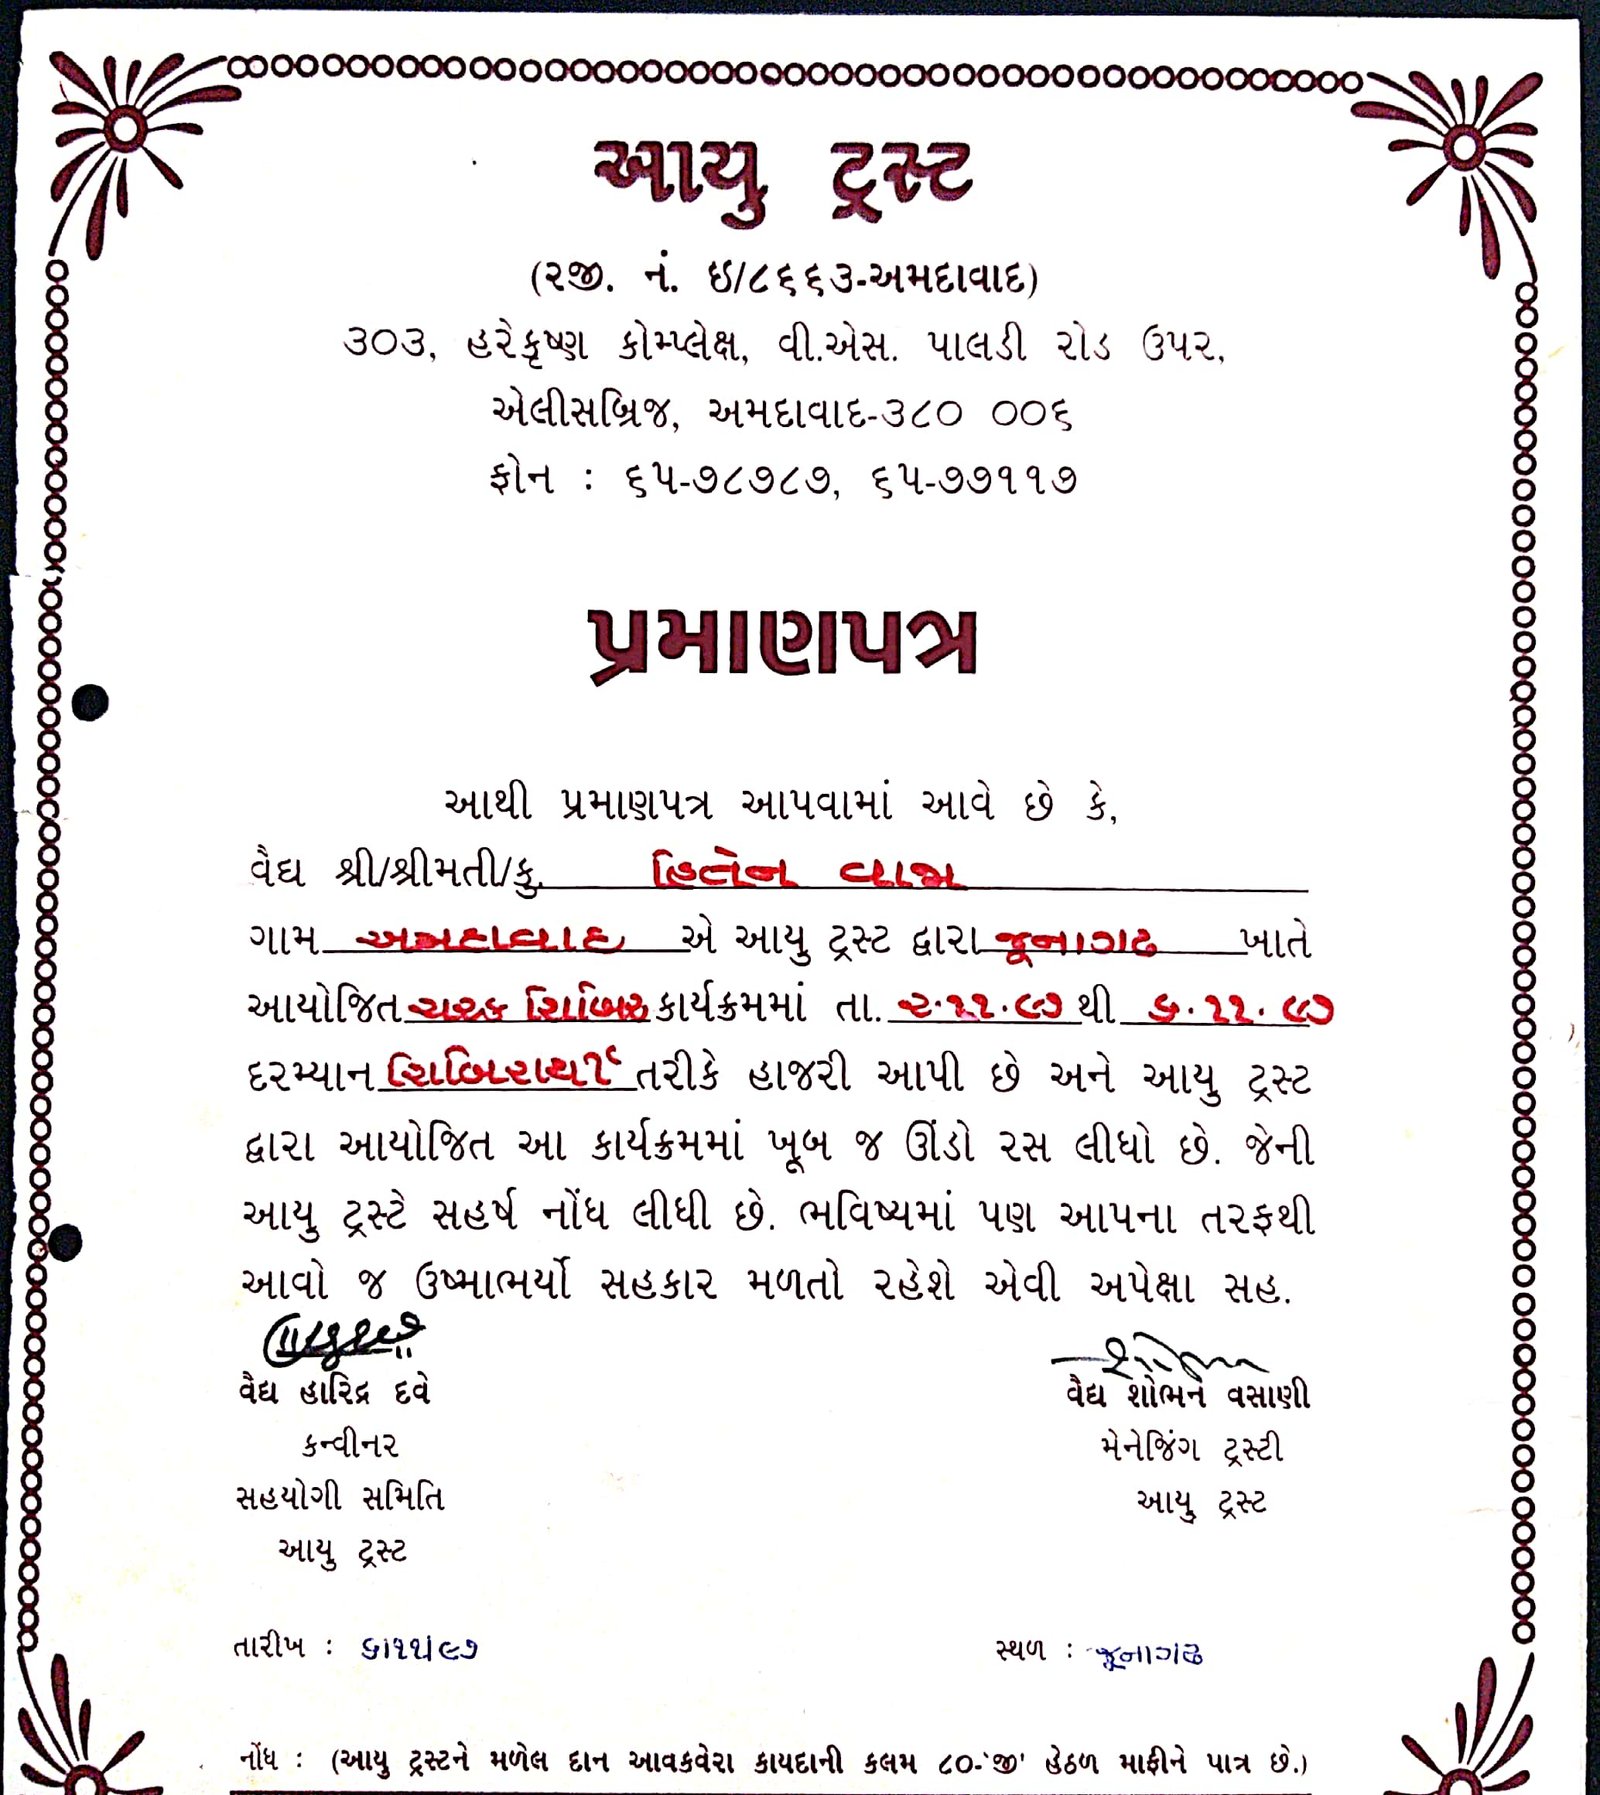 આયુ ટ્રસ્ટ
(રજી. નં. ઇ/૮૬૬૩-અમદાવાદ)
૩૦૩, હરેકૃષ્ણ કોમ્પ્લેક્ષ, વી.એસ. પાલડી રોડ ઉપર,
એલીસબ્રિજ, અમદાવાદ-૩૮૦ ૦૦૬
ફોન : ૬૫-૭૮૭૮૭, ૬૫-૭૭૧૧૭
પ્રમાણપત્ર
આથી પ્રમાણપત્ર આપવામાં આવે છે કે,
વૈદ્ય શ્રી/શ્રીમતી/કુ. હિતેન વાજા
ગામ અમદાવાદ એ આયુ ટ્રસ્ટ દ્વારા જૂનાગઢ ખાતે
આયોજિત ચરક શિબિર કાર્યક્રમમાં તા. ૨.૧૧.૯૭ થી ૬.૧૧.૯૭
દરમ્યાન શિબિરાર્થી તરીકે હાજરી આપી છે અને આયુ ટ્રસ્ટ
દ્વારા આયોજિત આ કાર્યક્રમમાં ખૂબ જ ઊંડો રસ લીધો છે. જેની
આયુ ટ્રસ્ટે સહર્ષ નોંધ લીધી છે. ભવિષ્યમાં પણ આપના તરફથી
આવો જ ઉષ્માભર્યો સહકાર મળતો રહેશે એવી અપેક્ષા સહ.
વૈદ્ય હારિદ્ર દવે વૈદ્ય શોભન વસાણી
કન્વીનર મેનેજિંગ ટ્રસ્ટી
સહયોગી સમિતિ આયુ ટ્રસ્ટ
આયુ ટ્રસ્ટ
તારીખ : ૬/૧૧/૯૭ સ્થળ : જૂનાગઢ
નોંધ : (આયુ ટ્રસ્ટને મળેલ દાન આવકવેરા કાયદાની કલમ ૮૦-'જી' હેઠળ માફીને પાત્ર છે.)